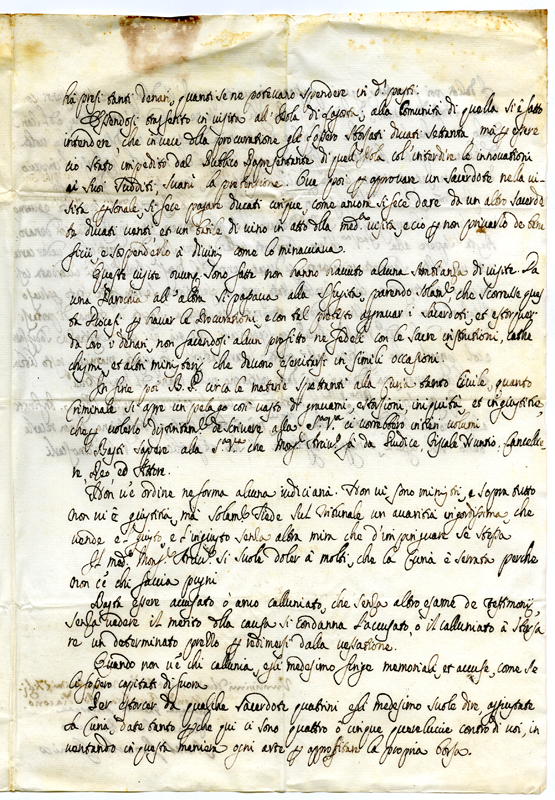 hà presi tanti denari, quanti se ne potevano spendere in d.i pasti.
Essendosi trasferito in visita all'Isola di Lagosta, alla Comunità di quella si è fatto
intendere che in vece della procuratione gli fossero sborsati ducati settanta mà p essere
ciò stato impedito dal Publico Rapresentante di quell'Isola col'interdire le innovationi
ai suoi sudditi, svanì la pretensione. Ove poi p approvare un sacerdote nella vi=
sita p.sonale, si fece pagare ducati cinque, come ancora si fece dare da un altro sacerdo=
te ducati vanti et un barile di vino in atto della med.a visita, e ciò p non privarlo de bene=
ficii, e sospenderlo à divinis come lo minacciava.
Queste visite ovunq. sono fatte non hanno havuto alcuna sembianza di visite. Da
una Parochia all'altra si passava alla sfugita, parendo solam.te che scorresse ques=
ta Diocesi p haver la Procurationi, e con tal pretesto aggravar i sacerdoti, et estorquer
da loro i denari, non facendosi alcun profitto ne fedeli con le sacre institutioni, cathe=
chismi, et altri ministerii che devono esercitarsi in simili occasioni.
In fine poi B.P. circa le materie spettanti alla Curia tanto Civile, quanto
Criminale si apre un pelago così vasto di gravami, estorsioni, iniquità, et ingiustitie,
che p volerlo distintam.te descrivere alla S.tà V.ra ci vorrebbero intieri volumi.
Basti sapere alla S.tà V.ra che Mons.r Arciv.o fà da Giudice Fiscale Nuntio, Cancellie=
re, Reo ed Attore.
Non v'è ordine ne forma alcuna iudiciaria. Non vi sono ministri, e sopra tutto
non vi è giustitia, mà solam.te siede sul Tribunale un avaritia ingordissima, che
vende e 'l giusto, e l'ingiusto senza altra mira che d'impinguare se stessa
Il med.o Mons.r Arciv.o si suole doler à molti, che la Curia è serrata perche
non c'è chi faccia pugni
Basta essere accusato ò anco calluniato, che senza altro esame de Testimonij,
senza vedere il merito della causa si condanna l'accusato, o il calluniato à sborsa=
re un determinato prezzo p redimersi dalla vessatione.
Quando non v'è chi callunia, egli medesimo finge memoriali et accuse, come se
li fossero capitati di fuora.
Per estorcer da qualche sacerdote quatrini egli medesimo suole dire, aggiustate
la Curia, date tanto p che qui ci sono quattro ò cinque querelluccie contro di voi, in=
ventando in questa maniera ogni arte p approfittare la propria borsa.